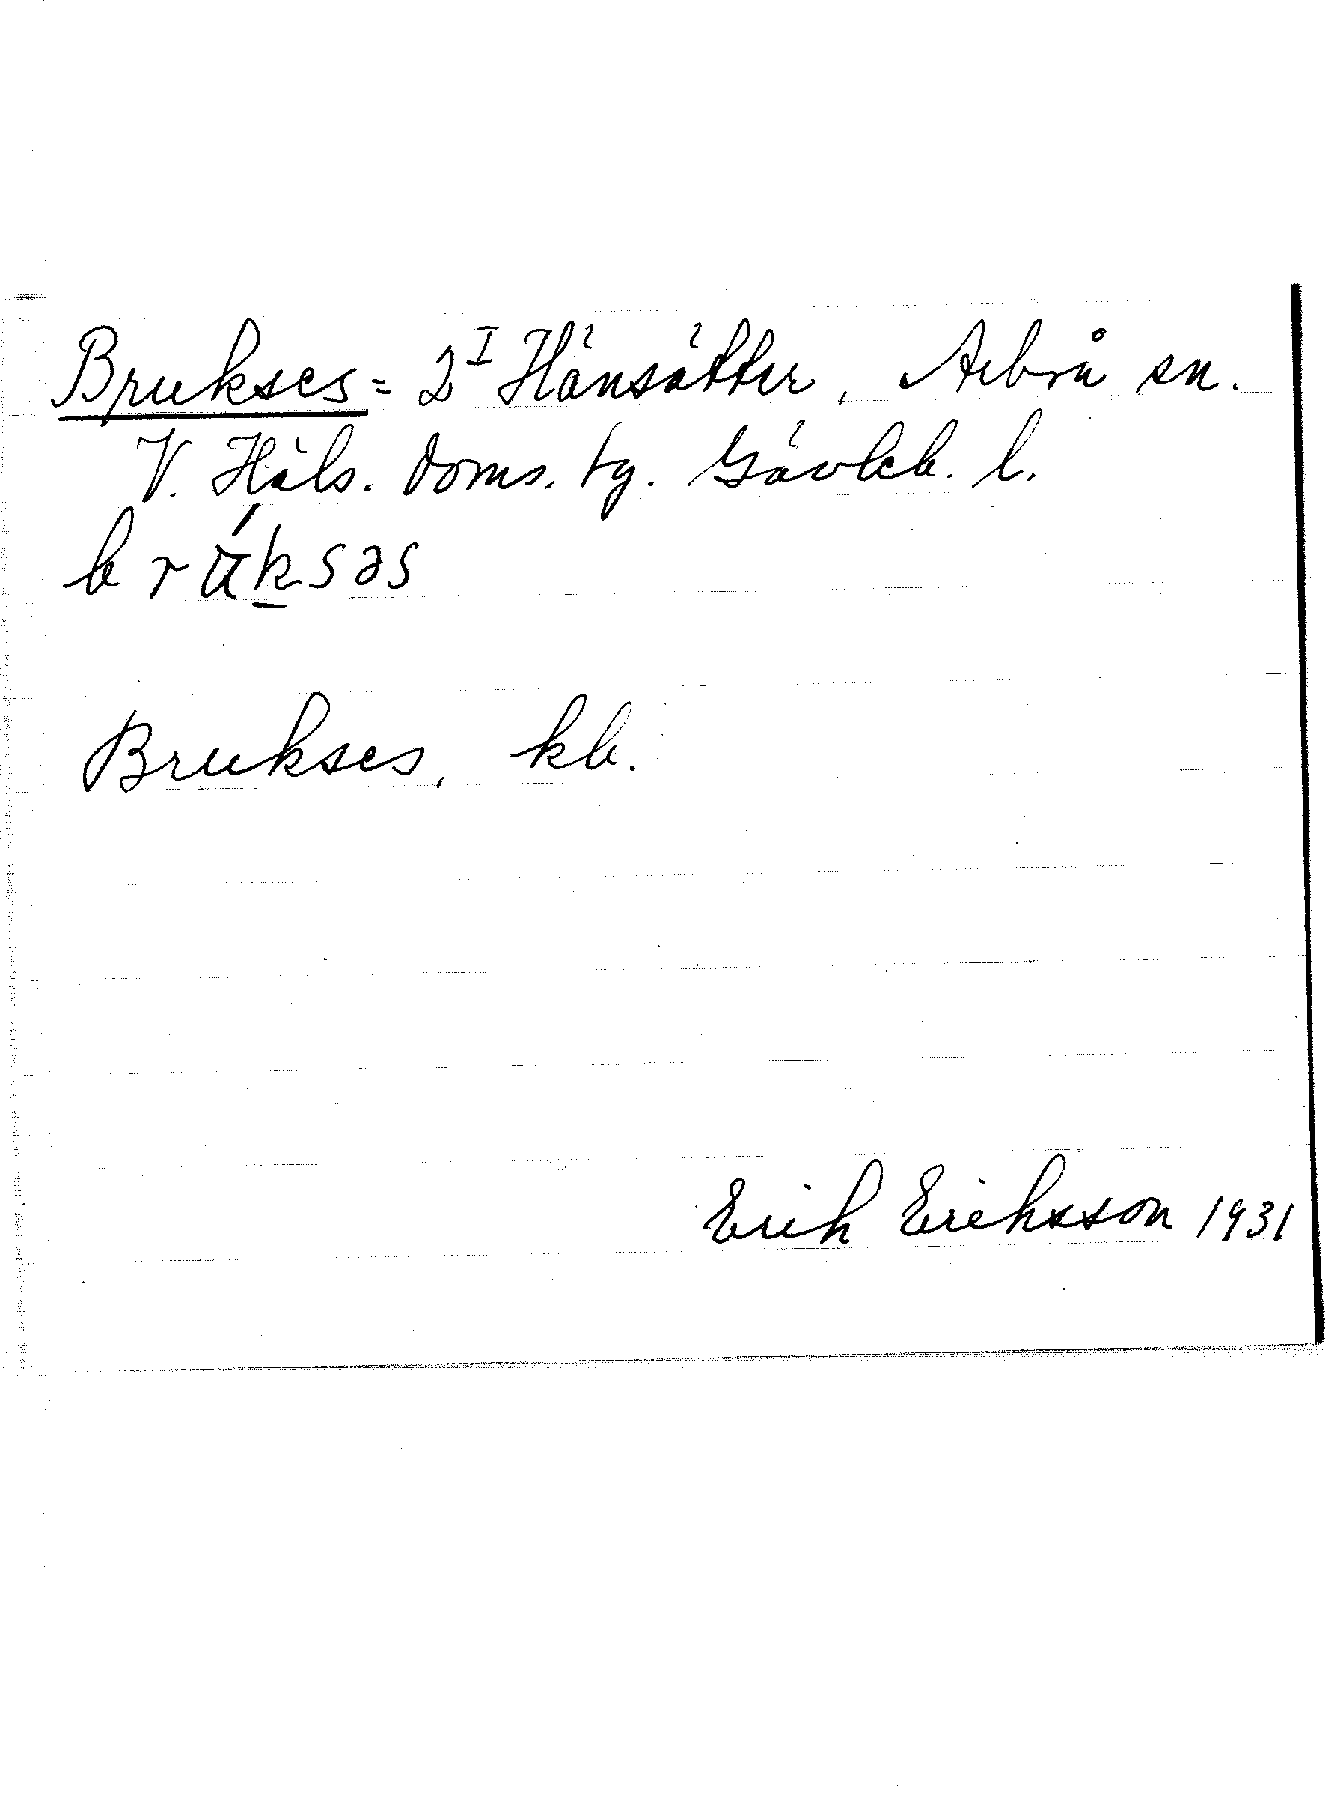 Brukses = 2^I Hänsätter, Arbrå sn.
V. Häls. doms. tg. Gävleb. l.
brúksəs
Brukses, kb.
Erik Eriksson 1931